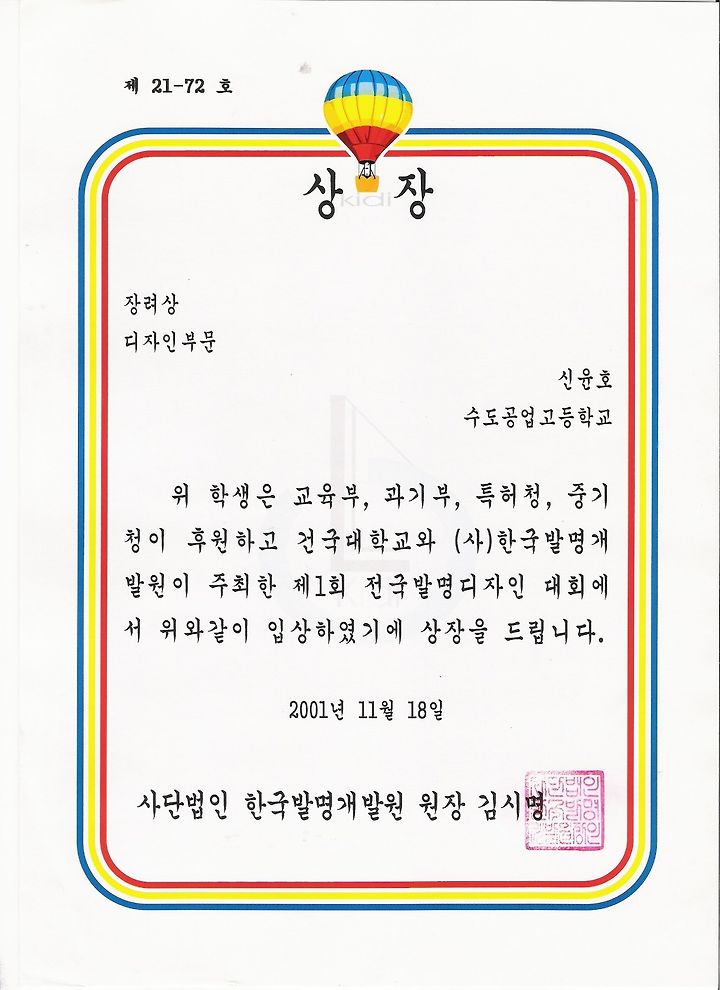 제 21-72 호
상 장
kidi
장려상
디자인부문
신윤호
수도공업고등학교
위 학생은 교육부, 과기부, 특허청, 중기
청이 후원하고 건국대학교와 (사)한국발명개
발원이 주최한 제1회 전국발명디자인 대회에
서 위와같이 입상하였기에 상장을 드립니다.
kidi
2001년 11월 18일
사단법인 한국발명개발원 원장 김시명